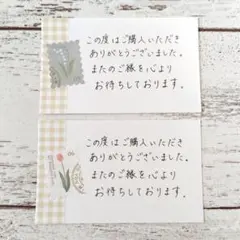 この度はご購入いただき
ありがとうございました。
またのご縁を心より
お待ちしております。
この度はご購入いただき
ありがとうございました。
またのご縁を心より
お待ちしております。